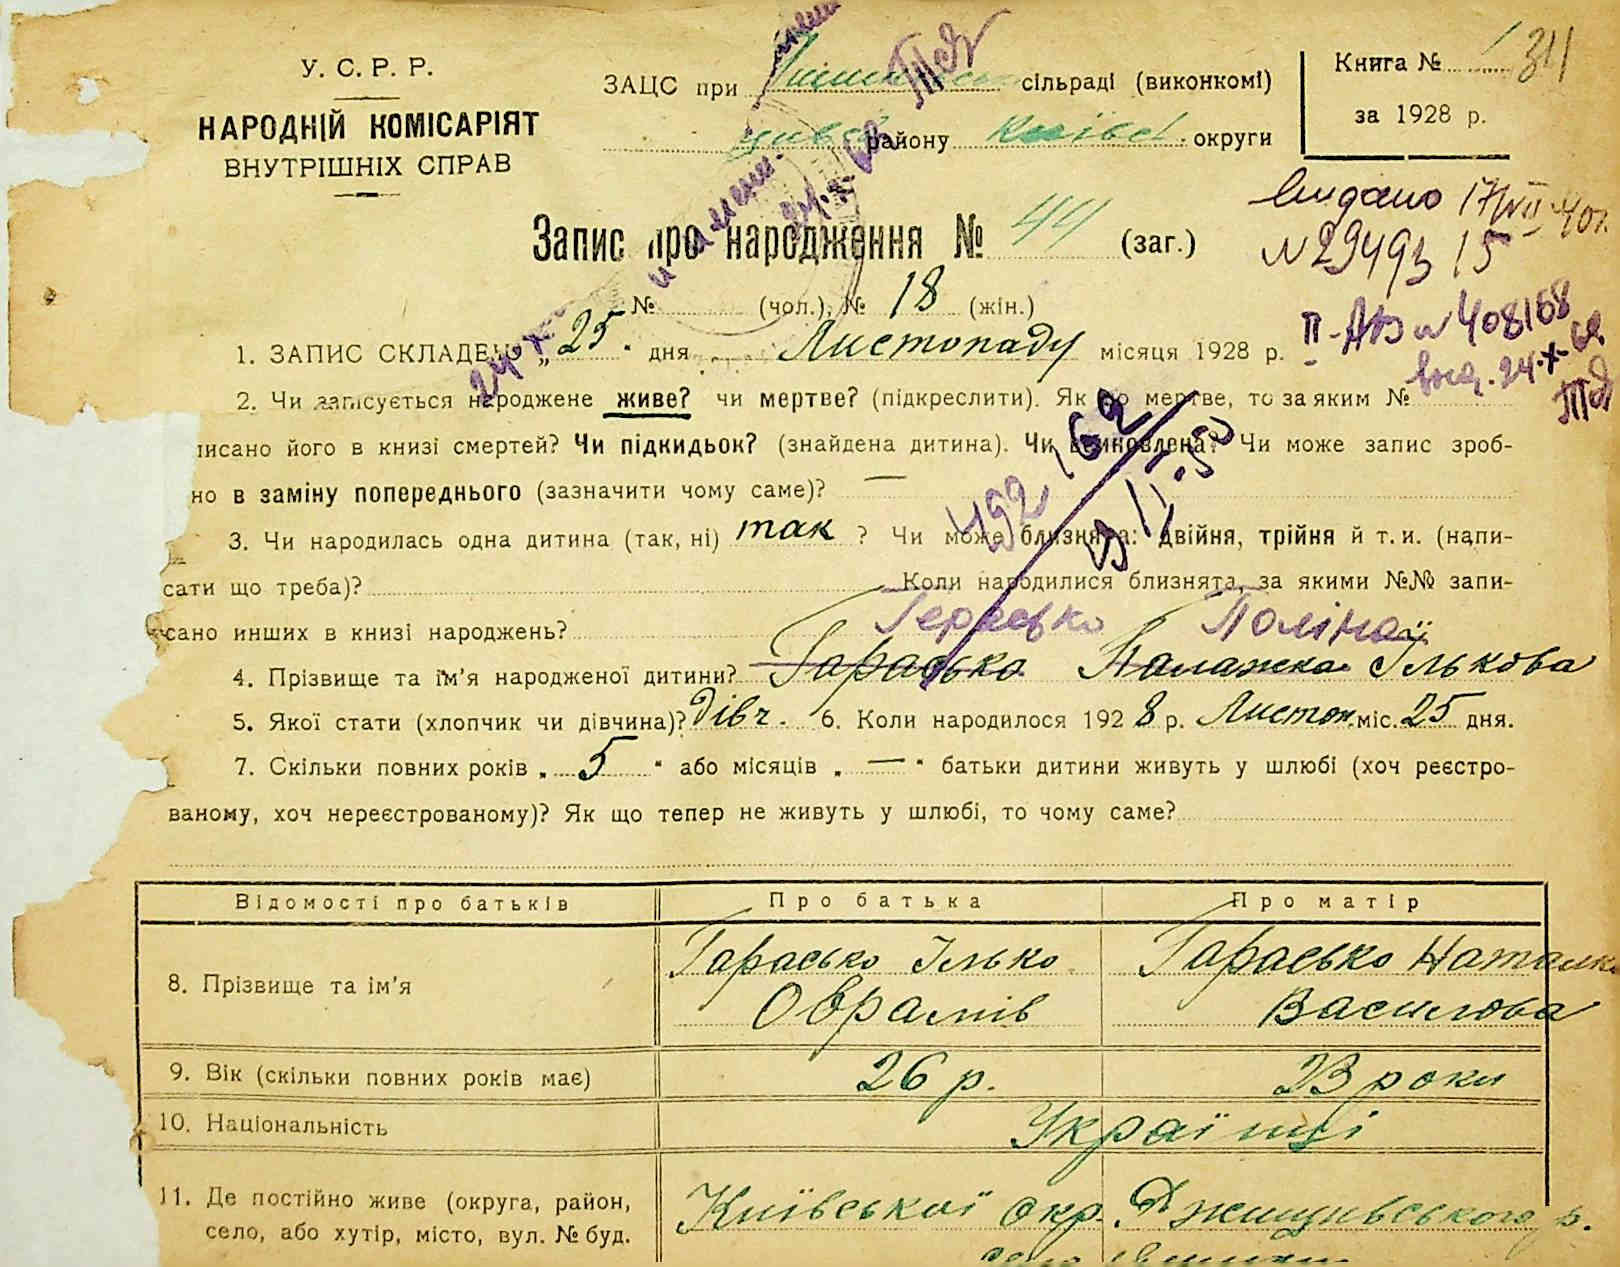 У. С. Р. Р.
НАРОДНІЙ КОМІСАРІЯТ
ВНУТРІШНІХ СПРАВ
ЗАЦС при сільраді (виконкомі)
району Київсь. округи
Книга № 1 34
за 1928 р.
Запис про народження № 44 (заг.)
видано 17/VII-40г.
№ 29493 15
№ (чол.), № 18 (жін.)
II-АБ № 408168
выд. 24.X.69
1. ЗАПИС СКЛАДЕНО „25" дня Листопаду місяця 1928 р.
24.X
2. Чи записується народжене живе? чи мертве? (підкреслити). Як що мертве, то за яким №
писано його в книзі смертей? Чи підкидьок? (знайдена дитина). Чи всиновлена? Чи може запис зроб-
но в заміну попереднього (зазначити чому саме)? —
492 169
3. Чи народилась одна дитина (так, ні) так ? Чи може близнята: двійня, трійня й т. и. (напи-
сати що треба)? Коли народилися близнята, за якими №№ запи-
сано инших в книзі народжень?
Герасько Поліна
4. Прізвище та ім'я народженої дитини? Гарасько Палажка Ількова
5. Якої стати (хлопчик чи дівчина)? дівч. 6. Коли народилося 1928 р. Листоп. міс. 25 дня.
7. Скільки повних років „ 5 " або місяців „ — " батьки дитини живуть у шлюбі (хоч реєстро-
ваному, хоч нереєстрованому)? Як що тепер не живуть у шлюбі, то чому саме?
Відомості про батьків Про батька Про матір
8. Прізвище та ім'я Гарасько Ілько Гарасько Наталка
Оврамів Василова
9. Вік (скільки повних років має) 26 р. 23 роки
10. Національність Українці
11. Де постійно живе (округа, район, Київської окр. Ржищівського р.
село, або хутір, місто, вул. № буд. село